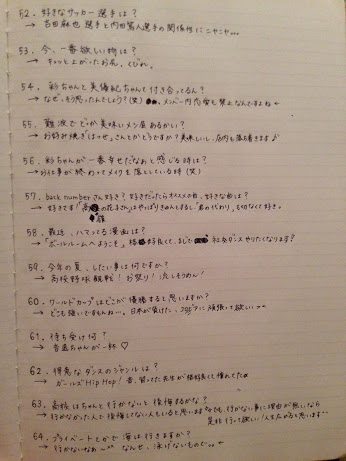 52. 好きなサッカー選手は?
→ 吉田麻也選手と内田篤人選手の関係性にニヤニヤ…
53. 今、一番欲しい物は?
→ キュッと上がったお尻。くびれ。
54. 彩ちゃんと美優紀ちゃんと付き合ってるん?
→ なぜ、そう思ったんでしょう?(笑) メンバー内恋愛も禁止なんですよね
55. 難波でどっか美味いメシ屋あるかい?
→ お好み焼き「はつせ」さんとかどうですか?美味しいし、店内も落ち着きます♪
56. 彩ちゃんが一番幸せだなぁと感じる時は?
→ お仕事が終わってメイクを落としている時(笑)
57. back number さん好き?好きだったらオススメの曲、好きな曲は?
→ 好きです「高嶺の花子さん」はやっぱりきゅんとするし、「君の代わり」も切なくて好き。
58. 最近、ハマってる漫画は?
→「ボールルームへようこそ」格好良くて、まじで社交ダンスやりたくなります?
59. 今年の夏、したい事は何ですか?
→ 高校野球観戦!お祭り!流しそうめん!
60. ワールドカップはどこが優勝すると思いますか?
→ どこも強いですもんね…。日本が負けた、コロンビアに頑張って欲しい
61. 待ち受け何?
→ 杏進ちゃんが一杯♡
62. 得意なダンスのジャンルは?
→ ガールズHip Hop!昔、習ってた先生が格好良くて憧れてた
63. 高校はちゃんと行かないと後悔するかな?
→ 行かなかった人で後悔してない人もいると思いますが、行かない事に理由が無いなら
是非行って欲しい!人生だからと思います…
64. プライベートとかで海は行きますか?
→ 行かないなぁ なんせ、泳げないもので。